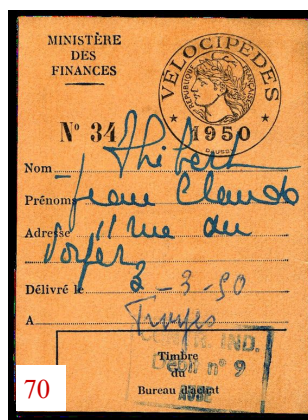 MINISTÈRE
DES
FINANCES
VÉLOCIPÈDES
RÉPUBLIQUE FRANÇAISE
★ 1950 ★
N° 34
Nom Thibert
Prénoms Jean Claude
Adresse 11 rue du
Délivré le 2-3-50
A Troyes
IND.
Débit n° 9
AUBE
Timbre
du
Bureau d'achat
70